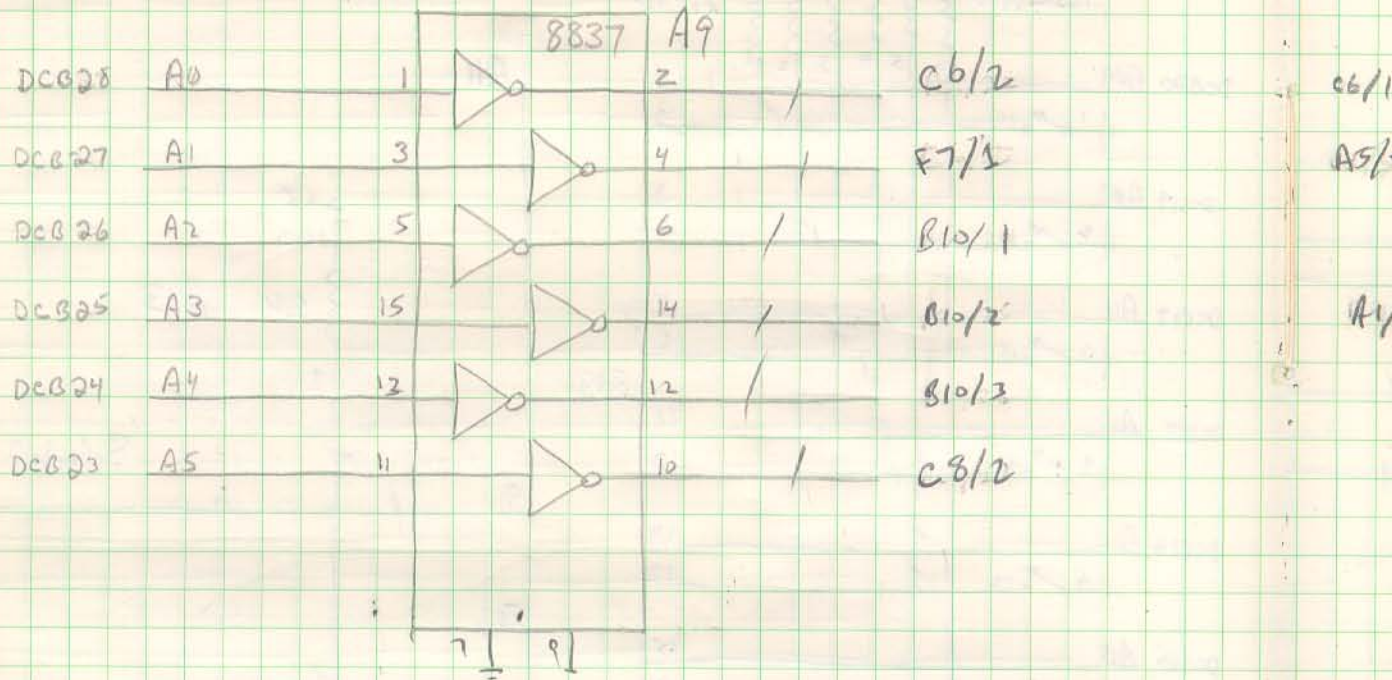 8837 A9
DCB28 A0 1 2 C6/2 C6/1
DCB27 A1 3 4 F7/1 A5/
DCB26 A2 5 6 B10/1
DCB25 A3 15 14 B10/2 A1/
DCB24 A4 13 12 B10/3
DCB23 A5 11 10 C8/2
7 9